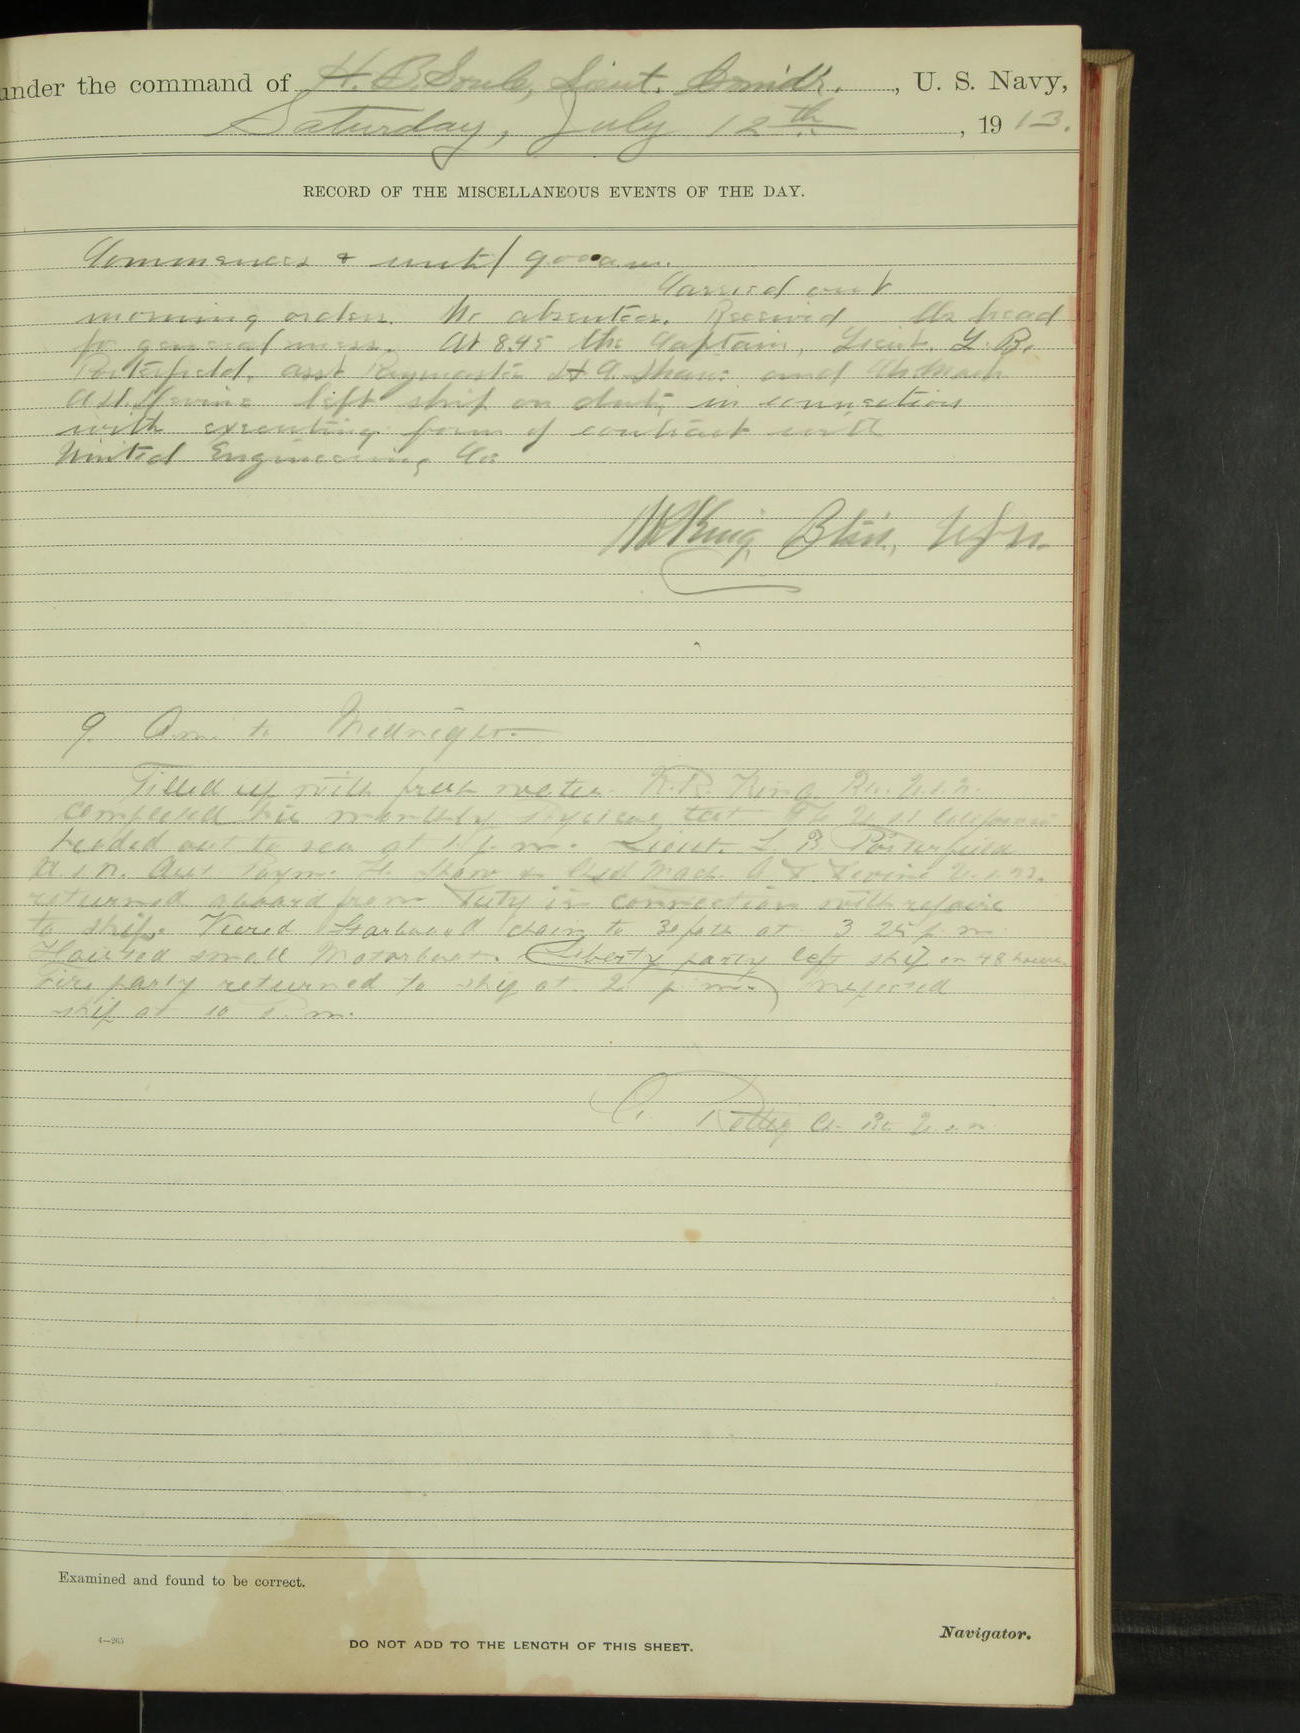 under the command of H. B. Soule, Lieut. Comdr., U. S. Navy,
Saturday, July 12th, 1913.
RECORD OF THE MISCELLANEOUS EVENTS OF THE DAY.
Commences & until 9 00 a.m.
Carried out
morning orders. No absentees. Received lbs bread
for general mess. At 8.45 the Captain, Lieut. L. B.
Porterfield, asst Paymaster H. A. Shaw and Chd Mach
A.T. Levine left ship on duty in connection
with executing form of contract with
United Engineering Co
King Btsn, USN.
9 a.m. to Midnight
Filled up with fresh water. King Btn. U.S.N.
completed his monthly physical test. The U.S.S. California
headed out to sea at 1 p.m. Lieut. L. B Porterfield
U.S.N. Asst. Paym. H. Shaw & Chd Mach A. T. Levine U.S.N.
returned aboard from duty in connection with repairs
to ship. Veered Starboard chain to 30 fath at 3 25 p.m
Hoisted small Motorboat. Liberty party left ship on 48 hours.
Fire party returned to ship at 2 p.m.
ship at 10 p.m.
C. Rottig Ch. Bt. U.S.N.
Examined and found to be correct.
4—265
DO NOT ADD TO THE LENGTH OF THIS SHEET.
Navigator.